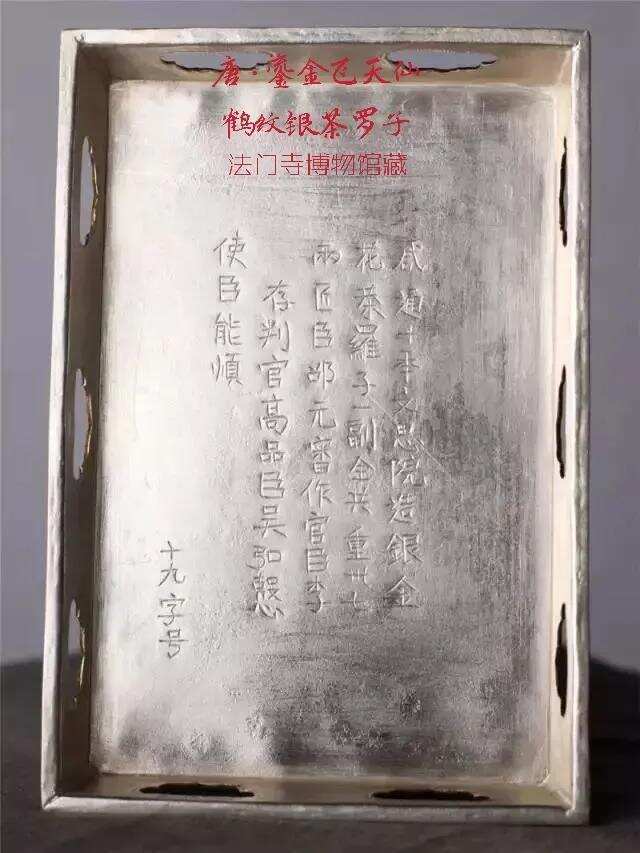 唐·鎏金飞天仙
鹤纹银茶罗子
法门寺博物馆藏
咸通十年文思院造銀金
花茶羅子一副全共重卅七
兩匠臣邵元審作官臣李
存判官高品臣吴弘慤
使臣能順
十九字号